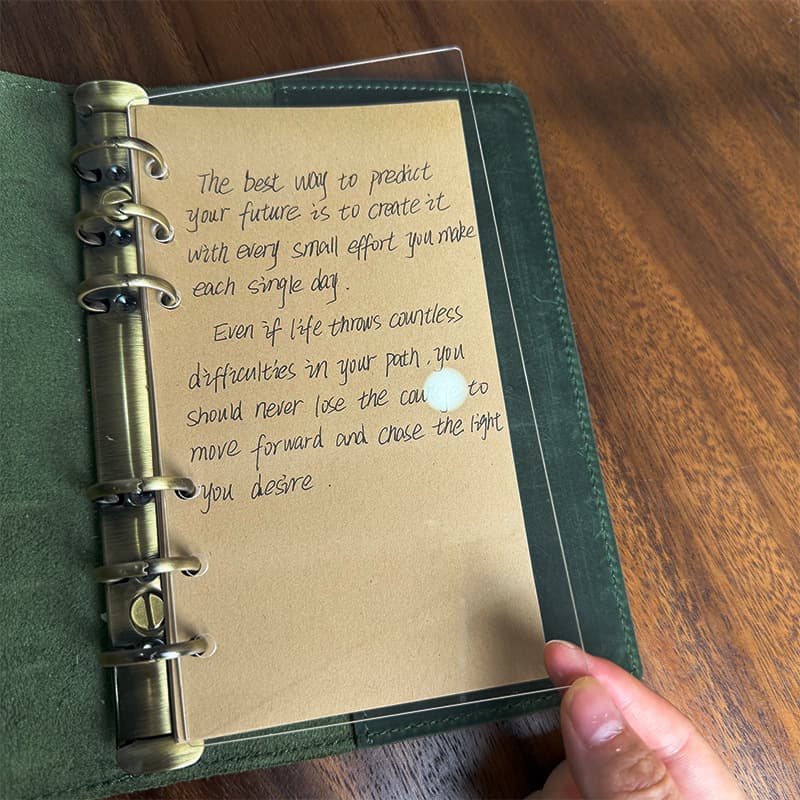 The best way to predict
your future is to create it
with every small effort you make
each single day.
Even if life throws countless
difficulties in your path, you
should never lose the to
move forward and chase the light
you desire.